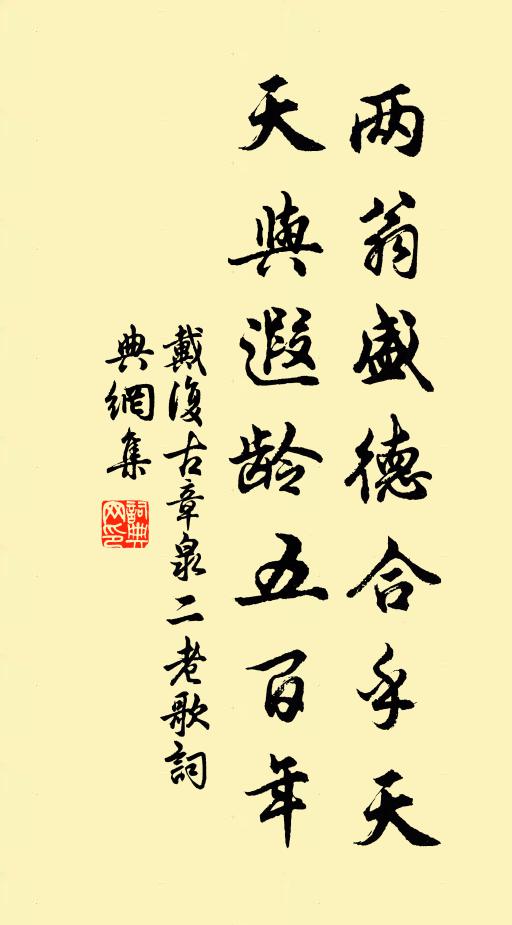 两翁盛德合乎天
天與遐龄五百年
戴復古章泉二老歌詞
典網集
詞典
网印